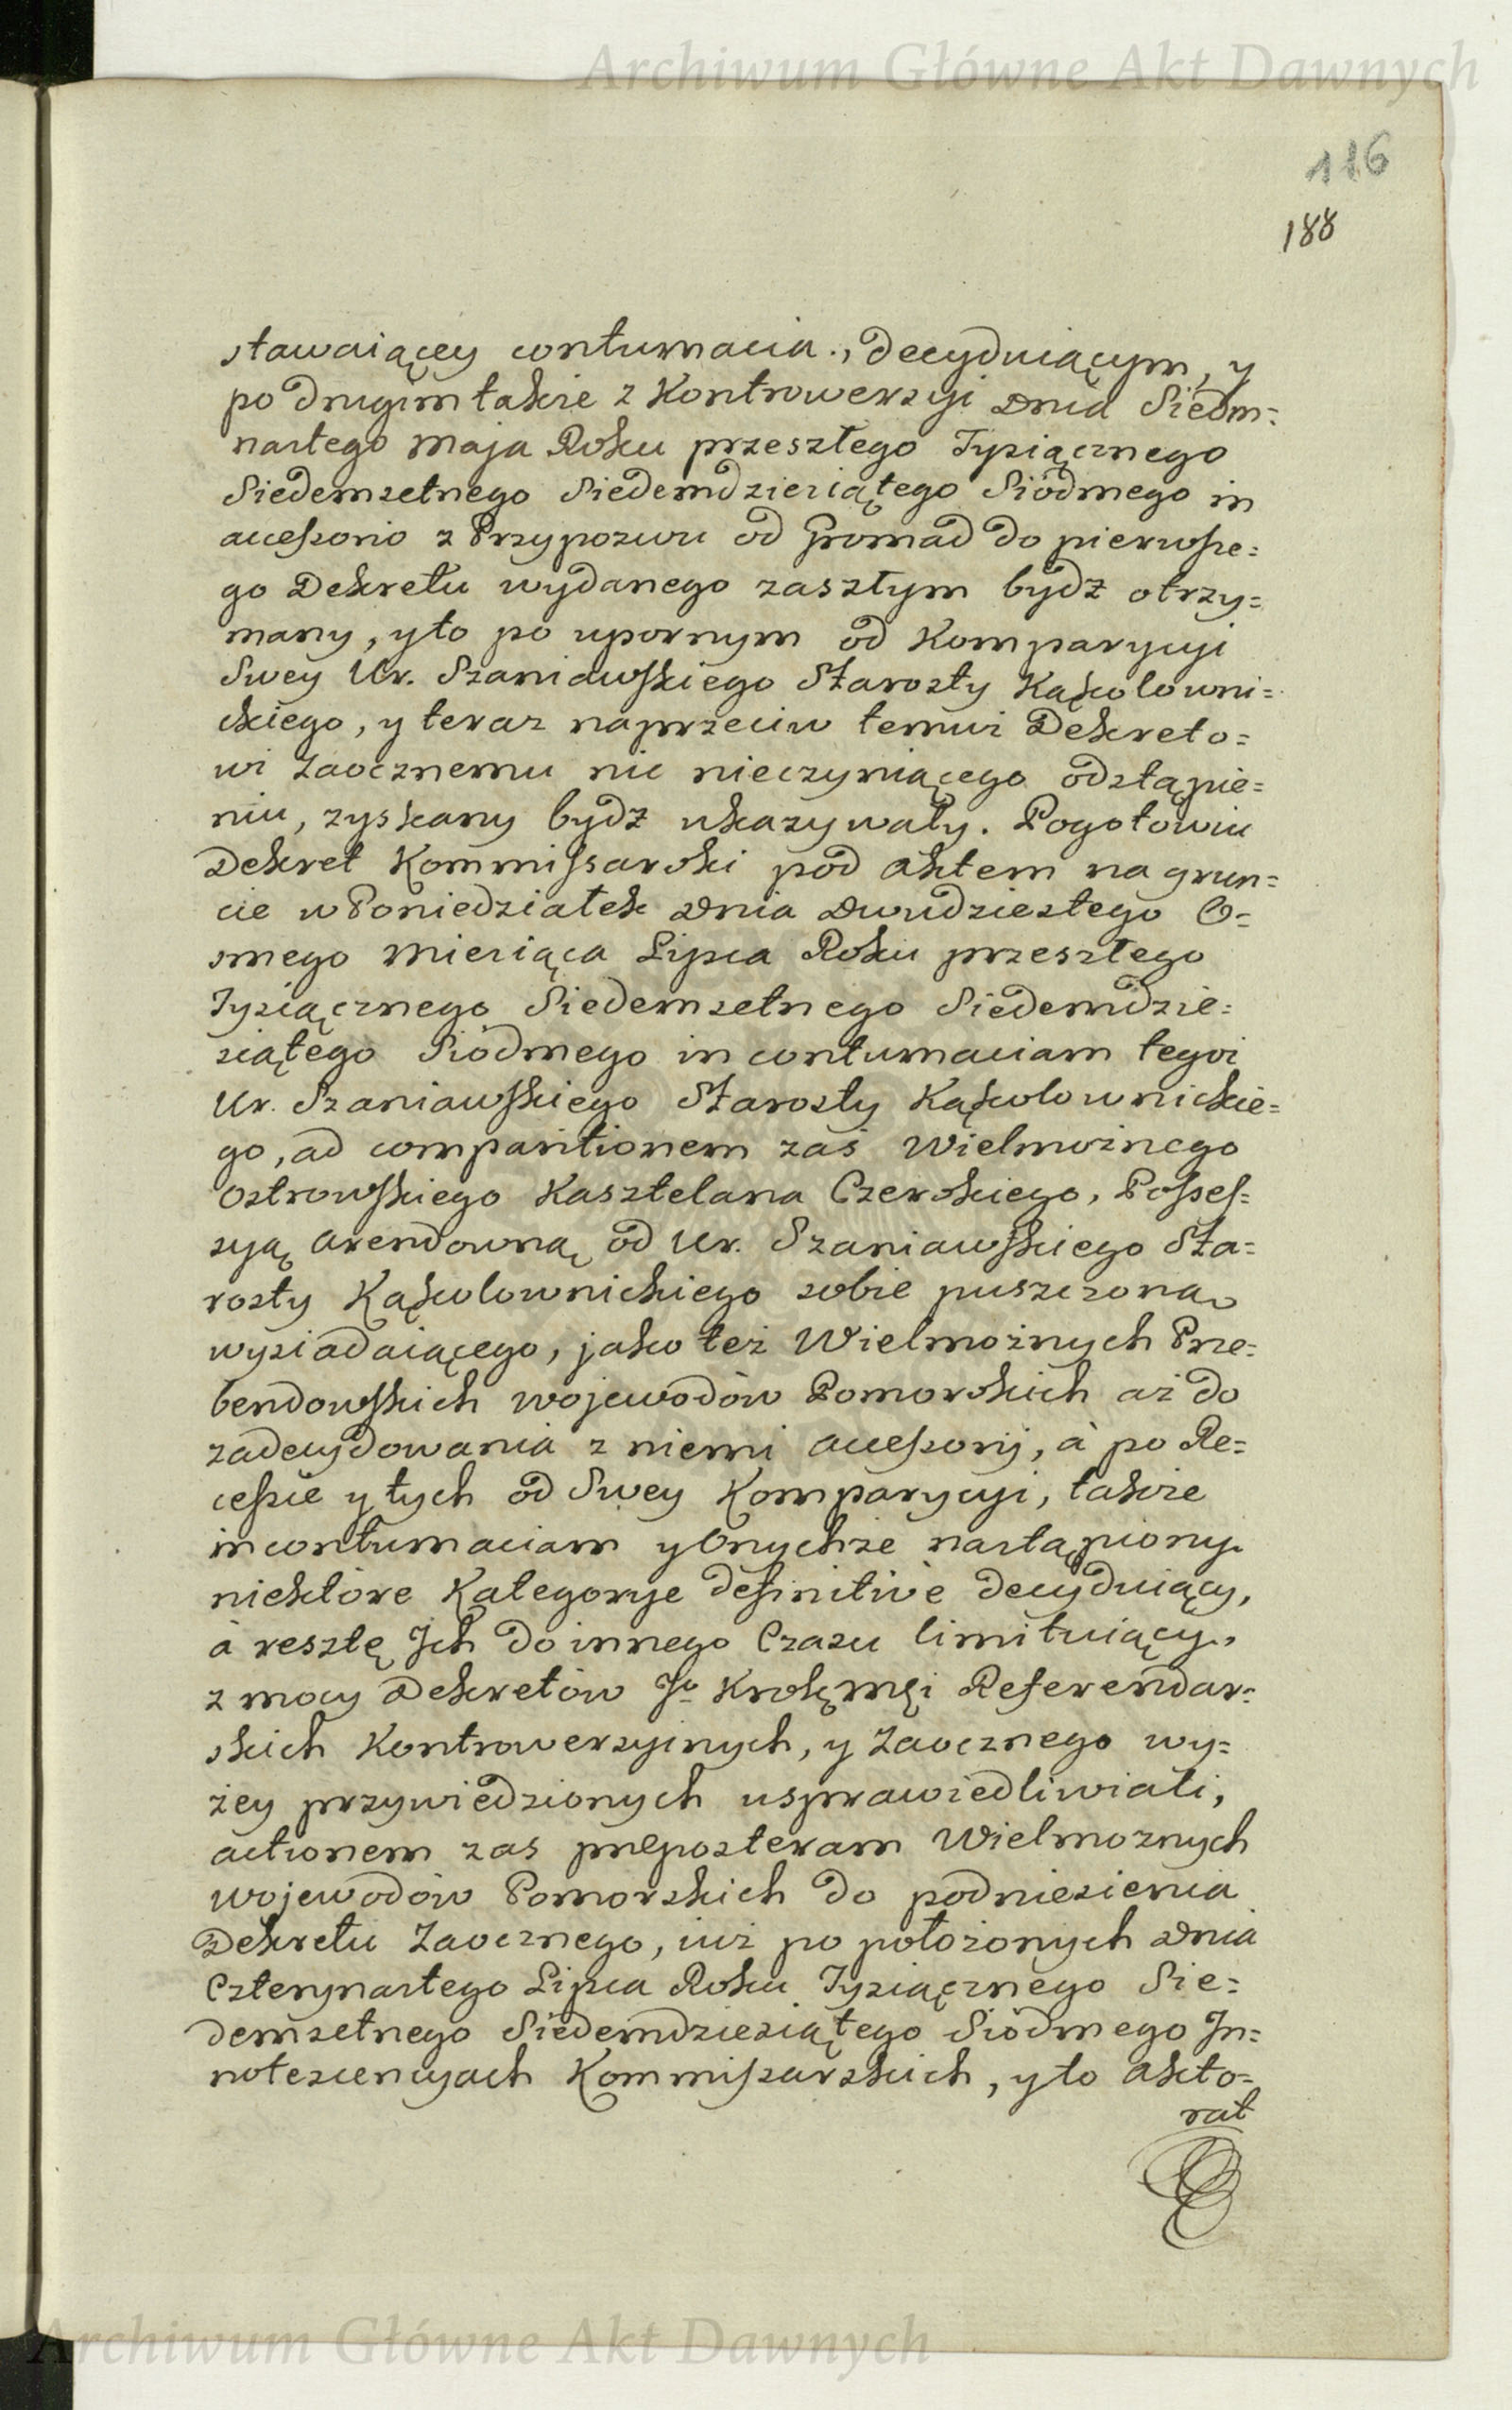 Archiwum Główne Akt Dawnych
116
188
stawaiącey contumacia., decyduiącym, y
po drugim także z Kontrowersyi Dnia Siedm=
nastego Maja Roku przeszłego Tysiącznego
Siedemsetnego Siedemdziesiątego Siódmego in
accessorio z Przypozwu od Gromad do pierwsze=
go Dekretu wydanego zaszłym bydź otrzy=
many, y to po upornym od Komparycyi
Swey Ur. Szaniawskiego Starosty Kąkolowni=
ckiego, y teraz naprzeciw temui Dekreto=
wi Zaocznemu nic nieczyniącego odstąpie=
niu, zyskany bydź ukazywały. Pogotowiu
Dekret Kommissarski pod aktem na grun=
cie w Poniedziałek Dnia Dwudziestego O=
smego Miesiąca Lipca Roku przeszłego
Tysiącznego Siedemsetnego Siedemdzie=
siątego Siódmego in contumaciam tegoi
Ur. Szaniawskiego Starosty Kąkolownickie=
go, ad comparitionem zaś Wielmożnego
Ostrowskiego Kasztelana Czerskiego, Posses=
syą arendowną od Ur. Szaniawskiego Sta=
rosty Kąkolownickiego sobie puszczoną
wysiadaiącego, jako też Wielmożnych Prze=
bendowskich Wojewodów Pomorskich aż do
zadecydowania z niemi accessorij, à po Re=
cessie y tych od Swey Komparycyi, także
in contumaciam y Onychże nastąpiony.
niektóre Kategorye definitivè decyduiący,
à resztę Jch do innego Czasu limituiący.,
z mocy Dekretów Jo Krolęmći Referendar=
skich Kontrowersyinych, y Zaocznego wy=
żey przywiedzionych usprawiedliwiali,
actionem zas preposteram Wielmoznych
Wojewodów Pomorskich do podniesienia
Dekretu Zaocznego, iuż po położonych Dnia
Czternastego Lipca Roku Tysiącznego Sie=
demsetnego Siedemdziesiątego Siódmego In=
notescencyach Kommissarskich, y to akto=
rat
Archiwum Główne Akt Dawnych